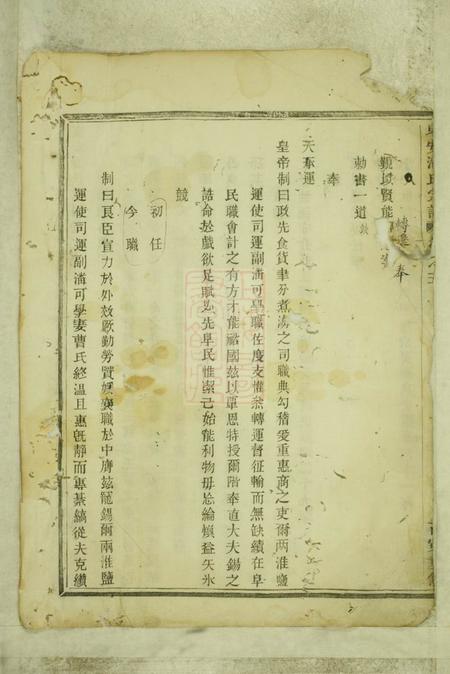 勅書一道
奉
天承運
皇帝制曰政先食貨聿分煮海之司職典勾稽爰重惠商之吏爾两淮鹽
運使司運副潘可學職佐度支惟愁轉運督征輸而無缺績在阜
民職會計之有方才能裕國兹以覃恩特授爾階奉直大夫錫之
誥命於戲欲足賦必先阜民惟潔己始能利物毋怠綸煥益矢氷
兢
初任
今職
制曰良臣宣力於外效厥勤勞賢媛襄職於中膺兹寵錫爾兩淮鹽
運使司運副潘可學妻曹氏終温且惠旣靜而專綦縞從夫克纘